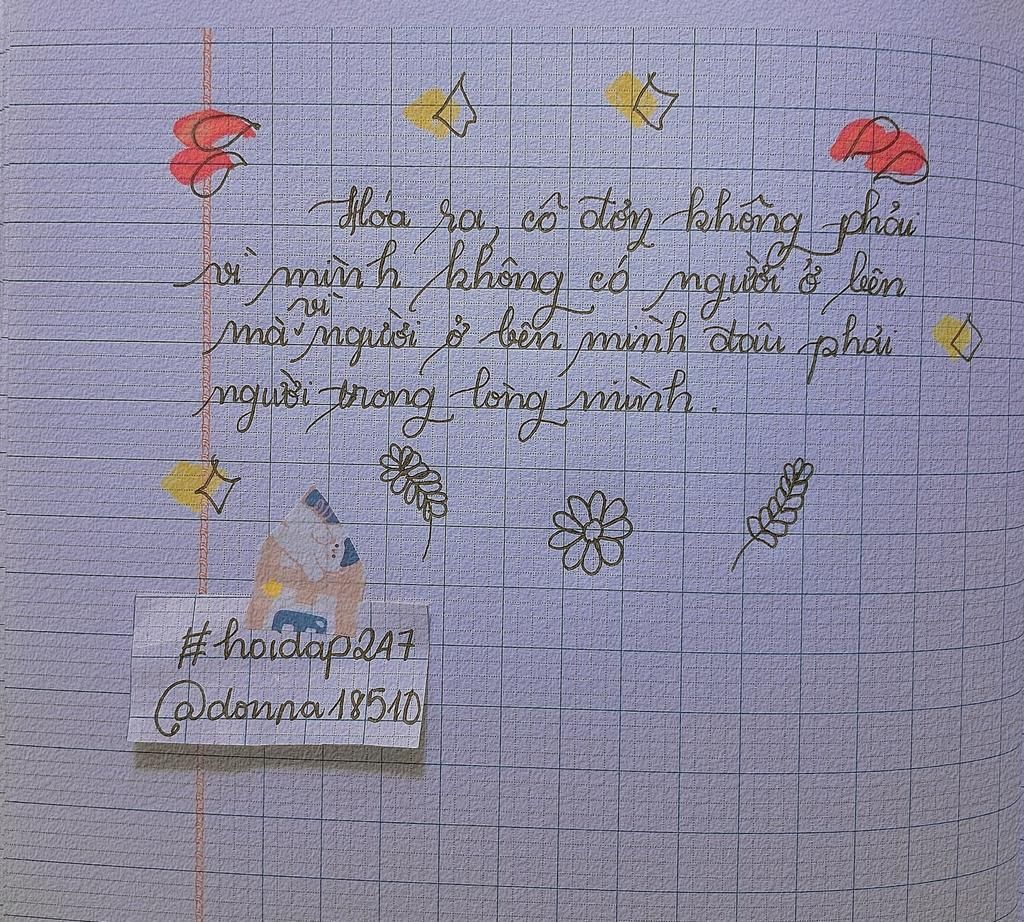 Hóa ra, cô đơn không phải
vì mình không có người ở bên
mà vì người ở bên mình đâu phải
người trong lòng mình.
#hoidap247
@donna18510